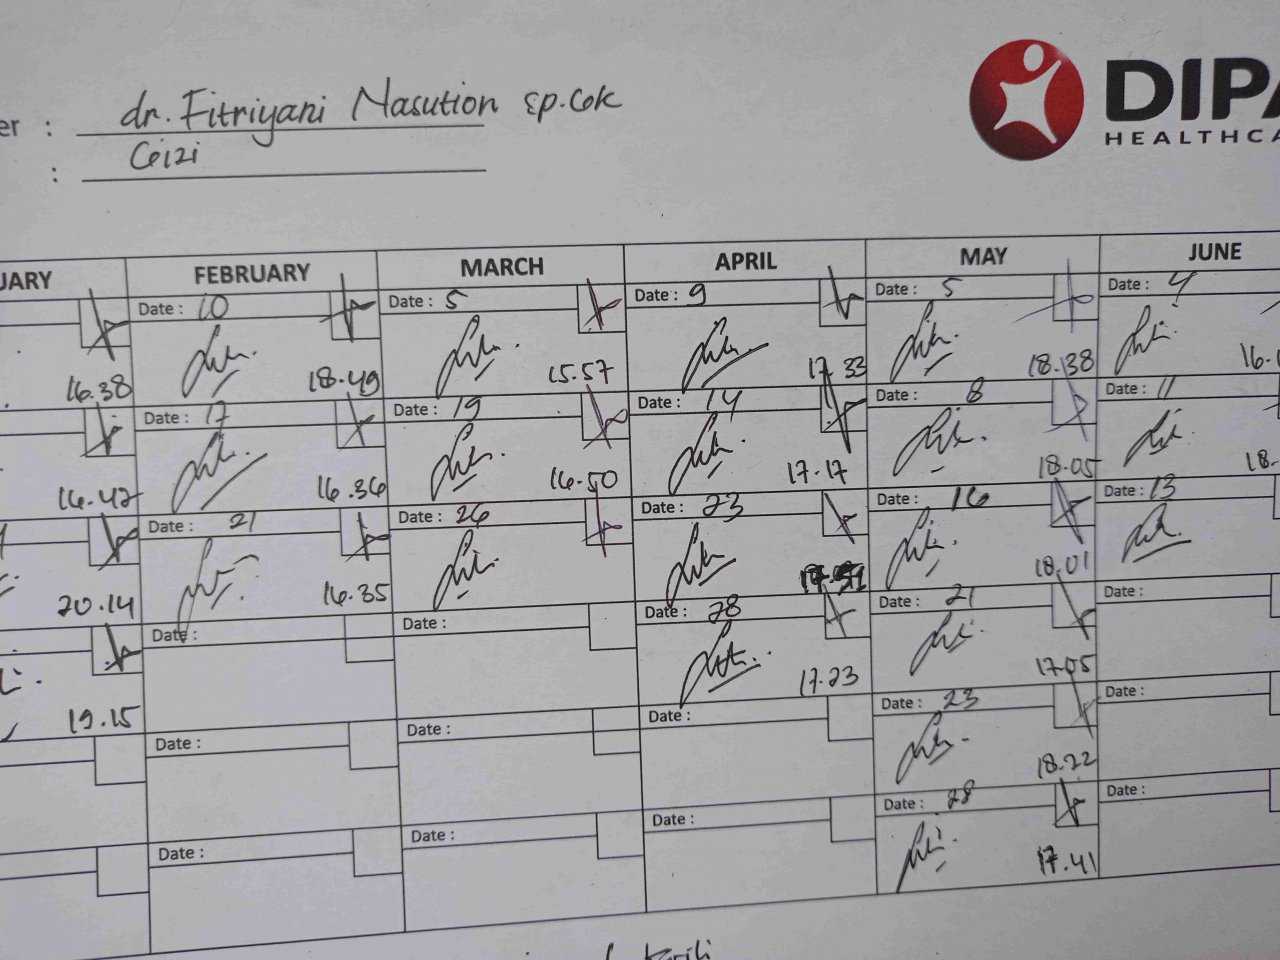 dr. Fitriyani Nasution sp.GK
er :
Gizi
:
DIPA
HEALTHCA
UARY
FEBRUARY
MARCH
APRIL
MAY
JUNE
16.38
Date : 10
18.49
Date : 5
15.57
Date : 9
17.33
Date : 5
18.38
Date : 4
16.
16.42
Date : 17
16.36
Date : 19
16.50
Date : 14
17.17
Date : 8
18.05
Date : 11
18.
20.14
Date : 21
16.35
Date : 26
Date : 23
Date : 16
18.01
Date : 13
19.15
Date :
Date :
Date : 28
17.23
Date : 21
17.05
Date :
Date :
Date :
Date :
Date : 23
18.22
Date :
Date :
Date :
Date :
Date : 28
17.41
Date :